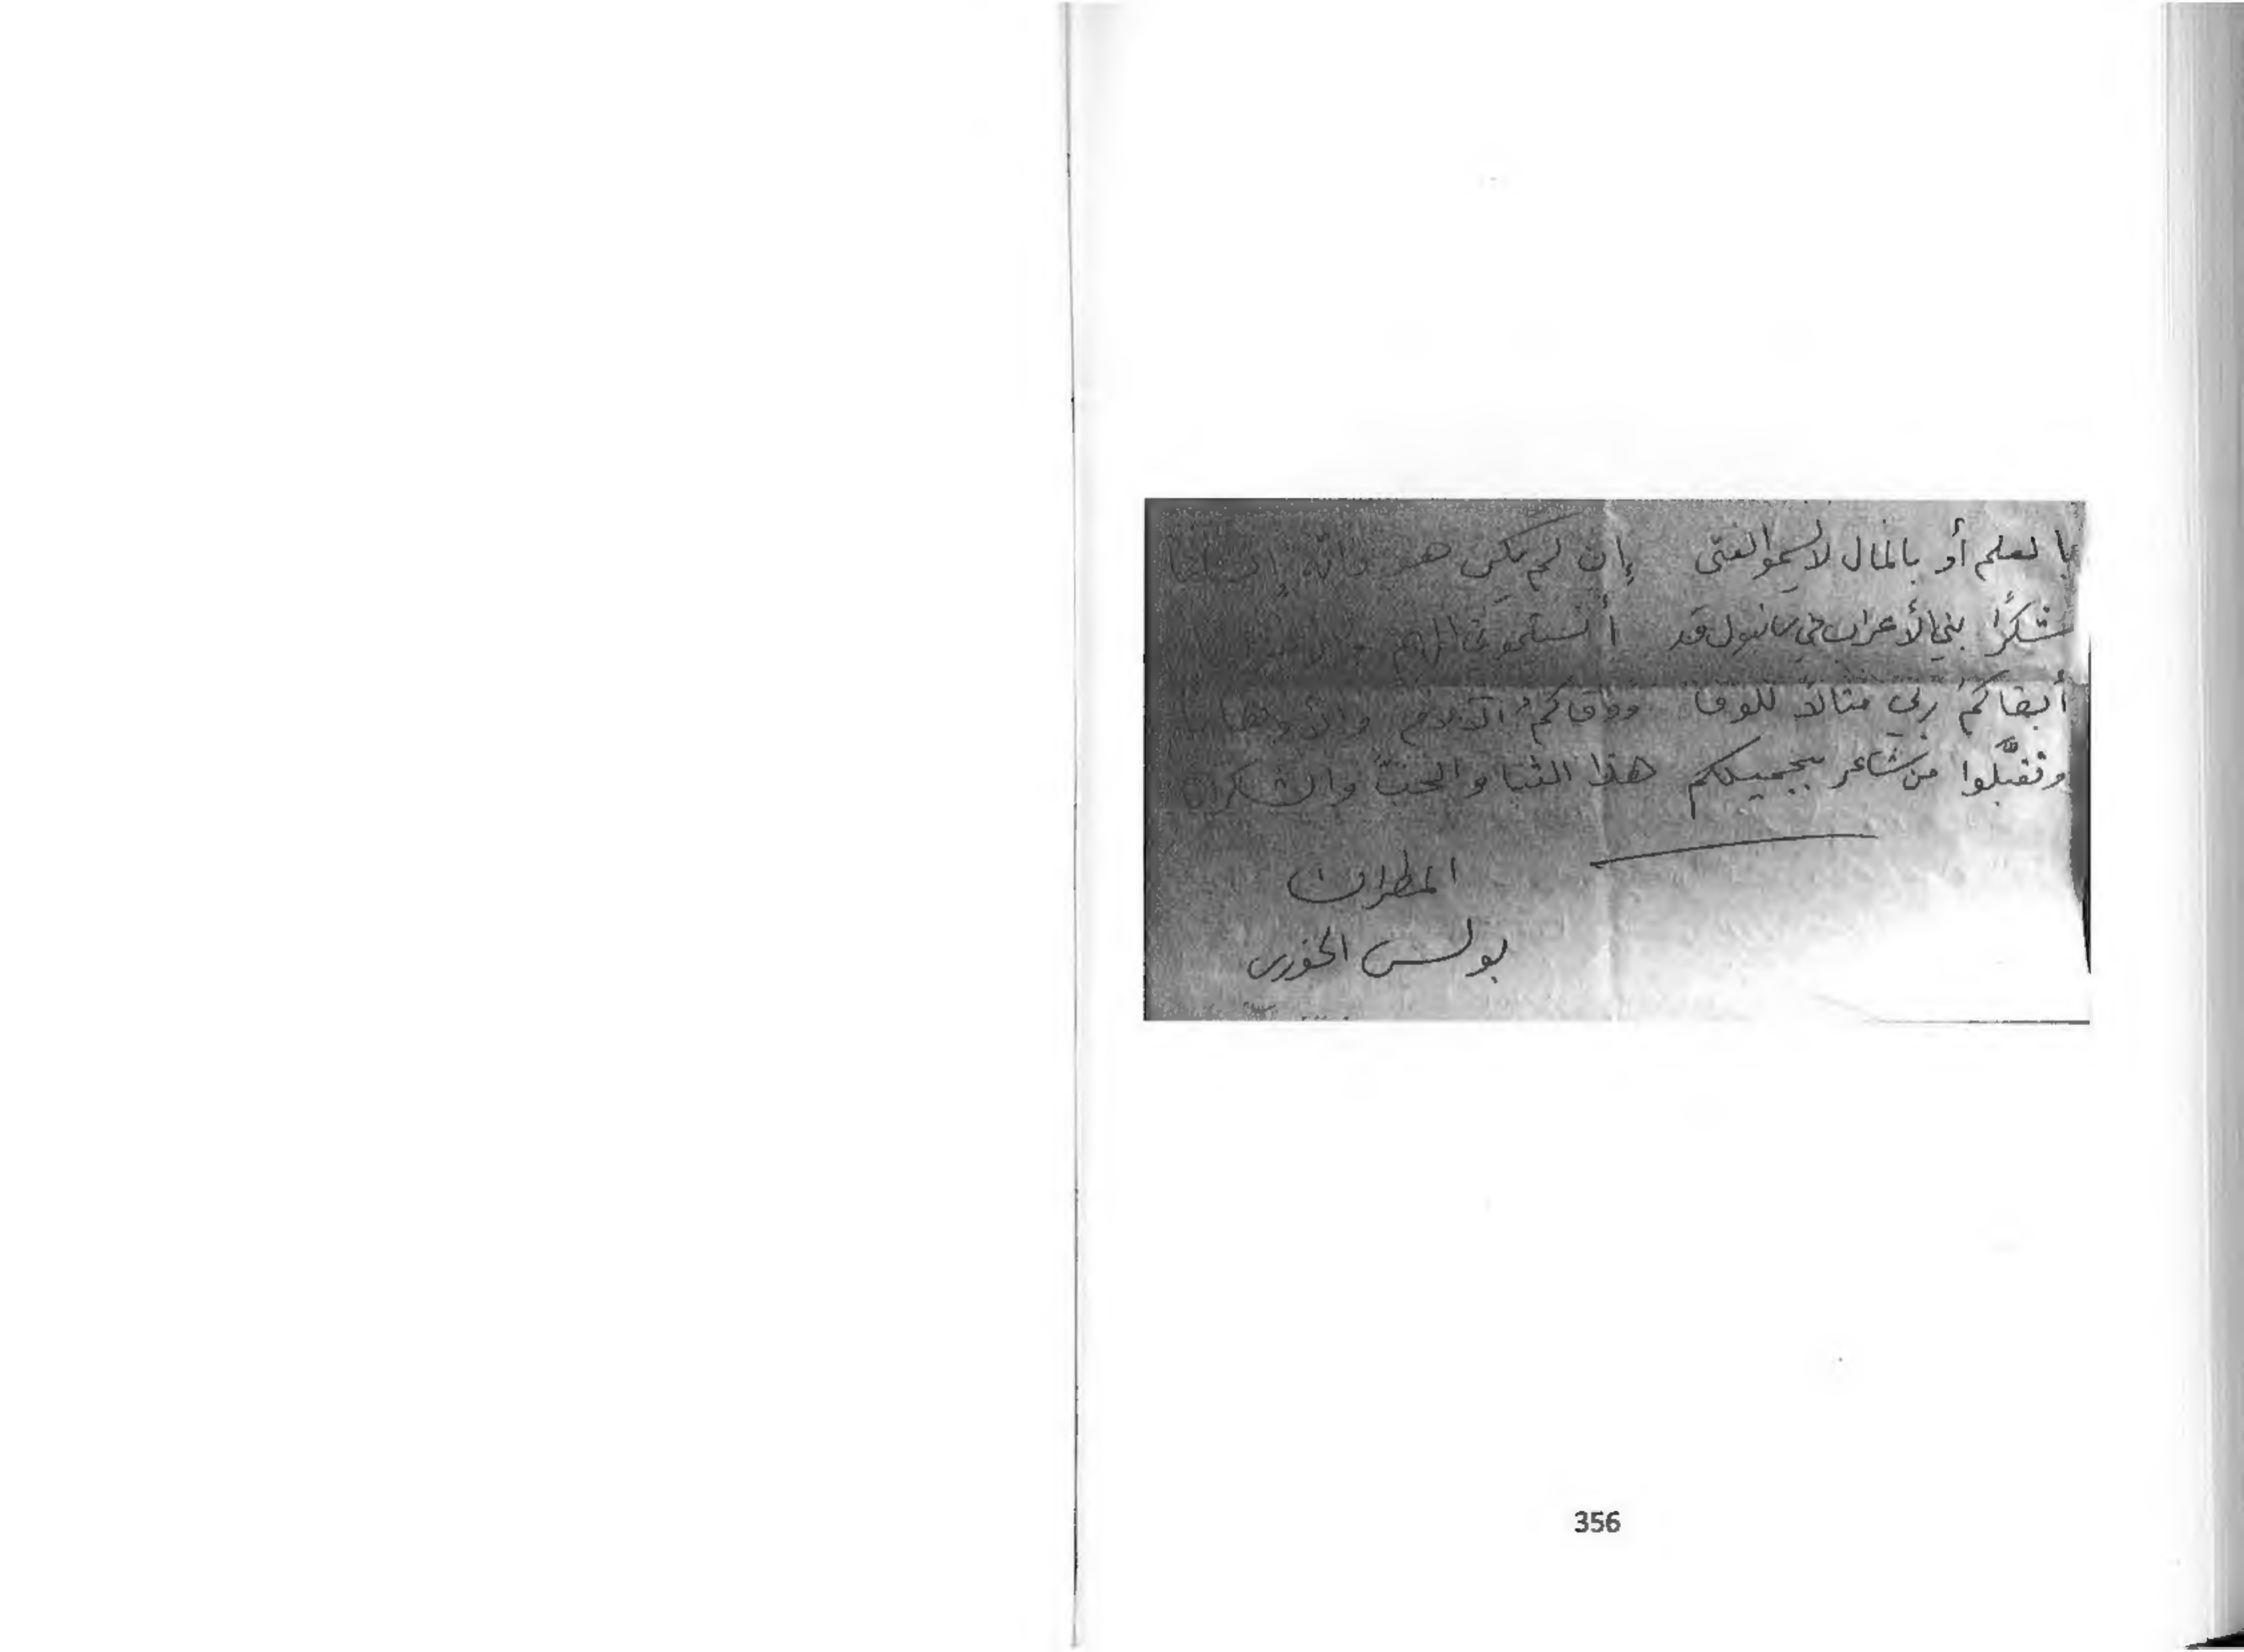 بالعلم أو بالمال لا يسمو الفتى إن لم يكن هو ذاته إنسانا
شكرًا بني الأعراب في سانبول قد أنستموني الهم
أبقاكمُ ربي مثالاً للوفا ووقاكمُ الآلام
وتقبَّلوا من شاعر بجميلكم هذا الثنا والحبّ والشكرانا
المطران
بولس الخوري
356